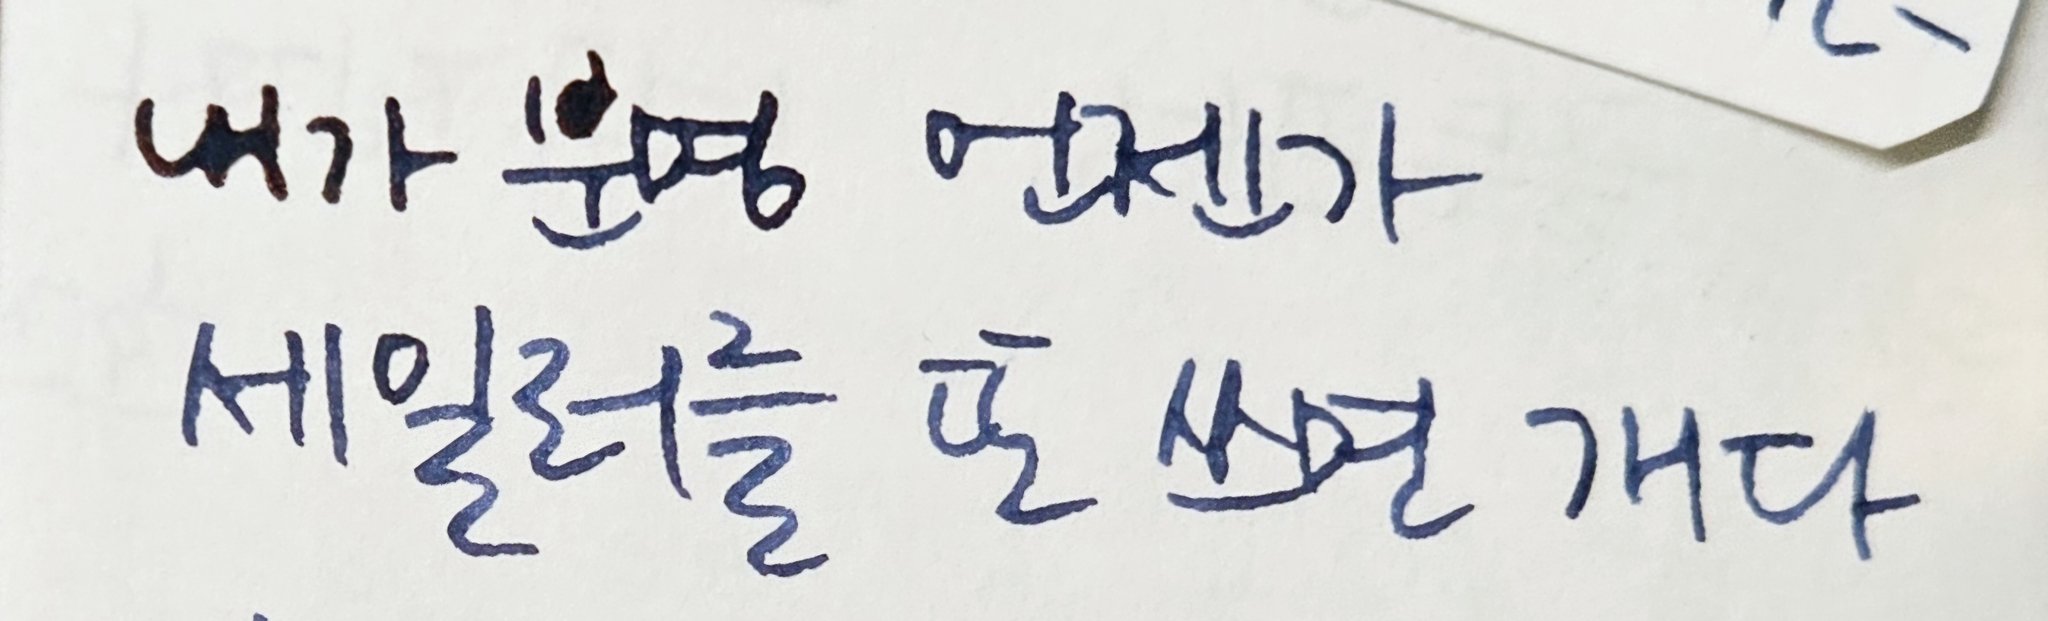 내가 분명 언젠가
세일러를 또 쓰면 개다